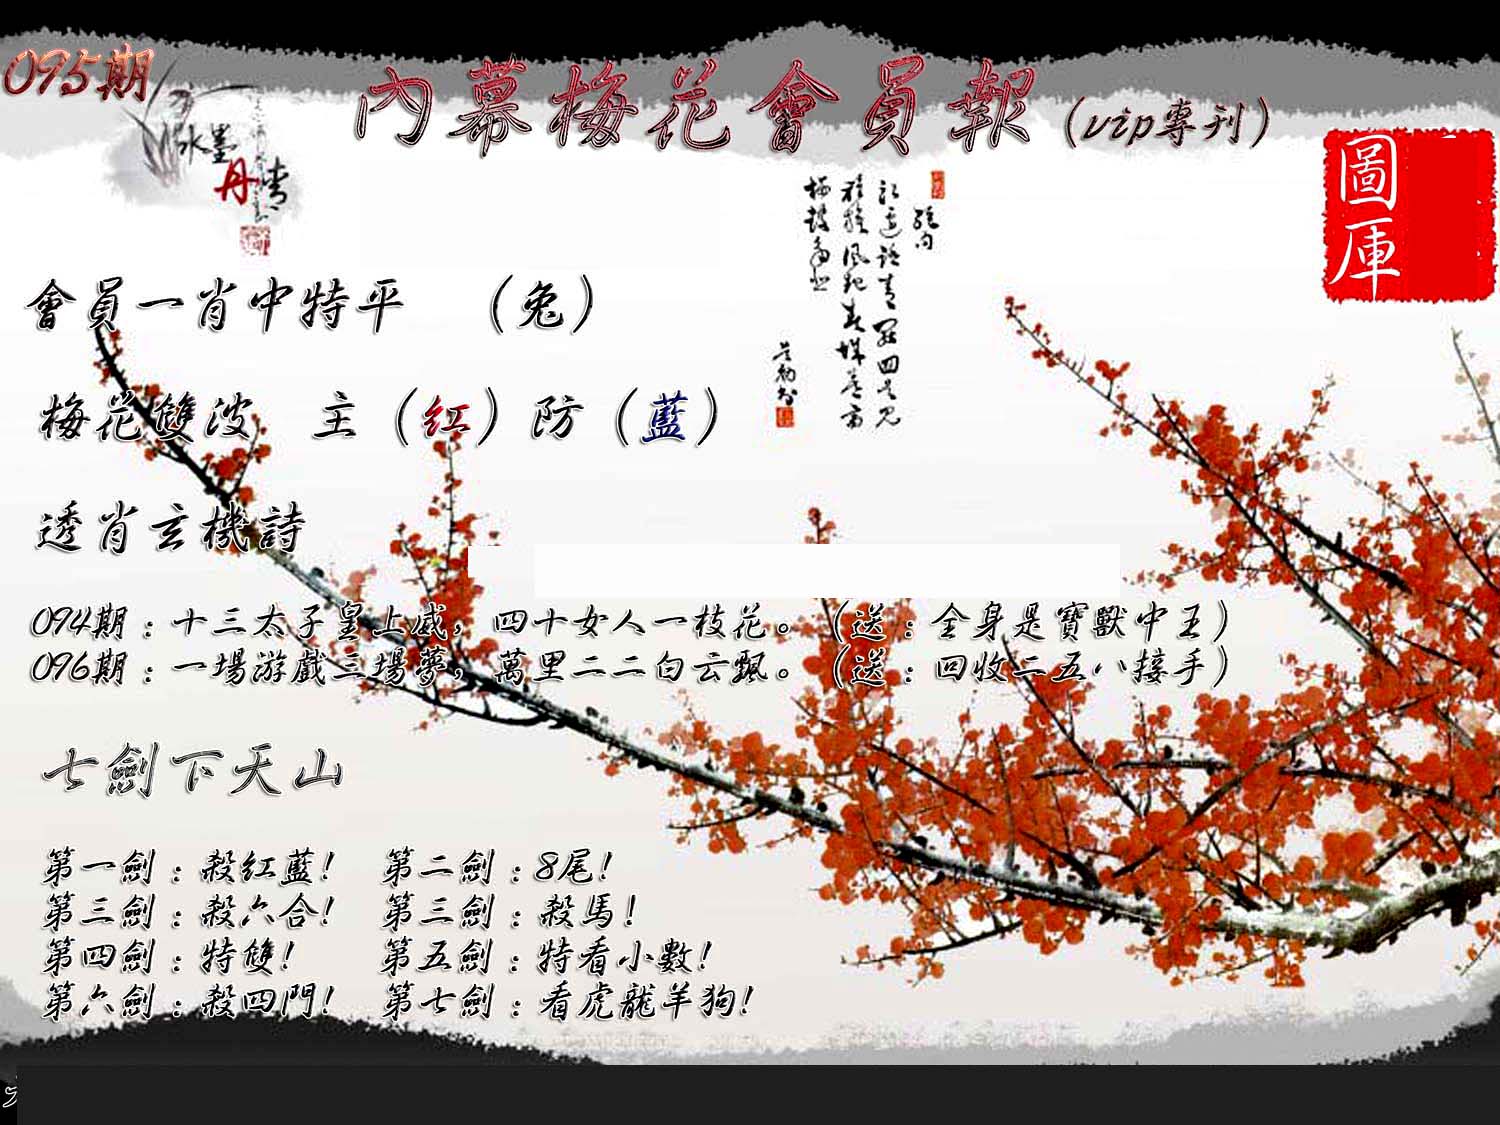 095期
內幕梅花會員報（vip專刊）
水墨
丹青
圖庫
會員一肖中特平　（兔）
梅花雙波　主（红）防（藍）
透肖玄機詩
094期：十三太子皇上威，四十女人一枝花。（送：全身是寶獸中王）
096期：一場游戲三場夢，萬里二二白云飄。（送：回收二五八接手）
七劍下天山
第一劍：殺红藍！　第二劍：8尾！
第三劍：殺六合！　第三劍：殺馬！
第四劍：特雙！　第五劍：特看小數！
第六劍：殺四門！　第七劍：看虎龍羊狗！